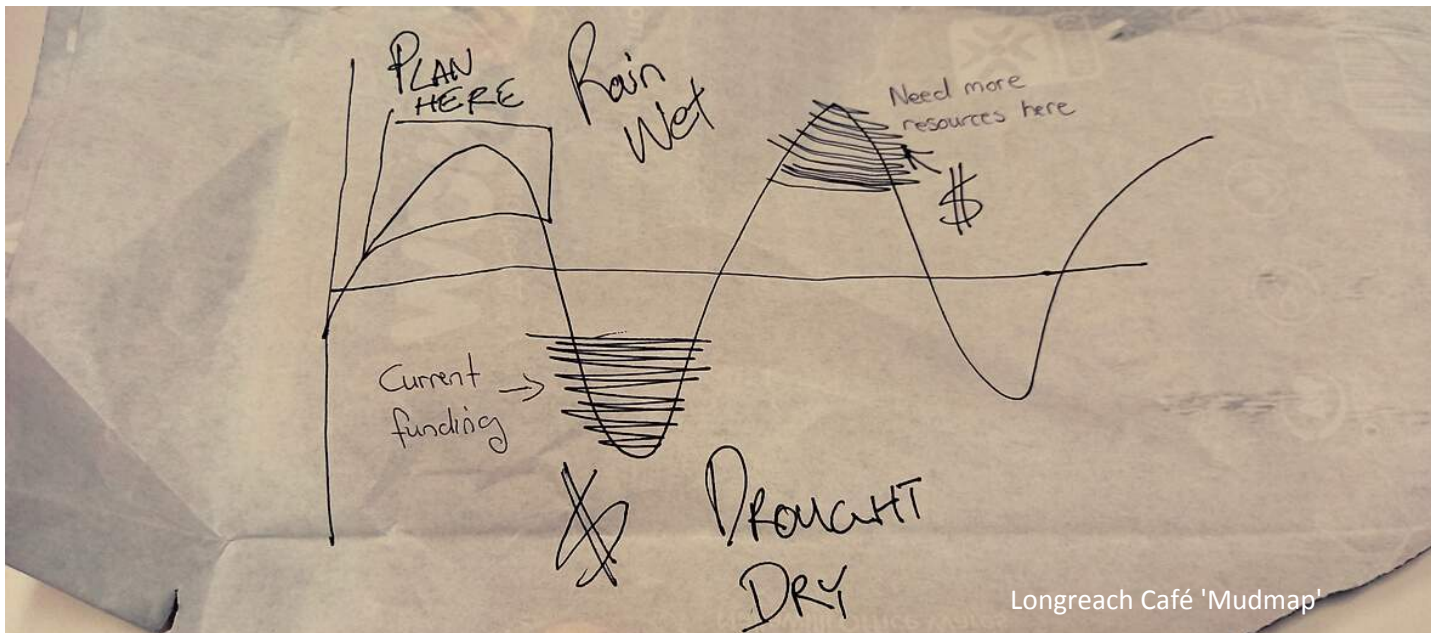 PLAN
HERE
Rain
Wet
Need more
resources here
$
Current
funding
$
DROUGHT
DRY
Longreach Café 'Mudmap'